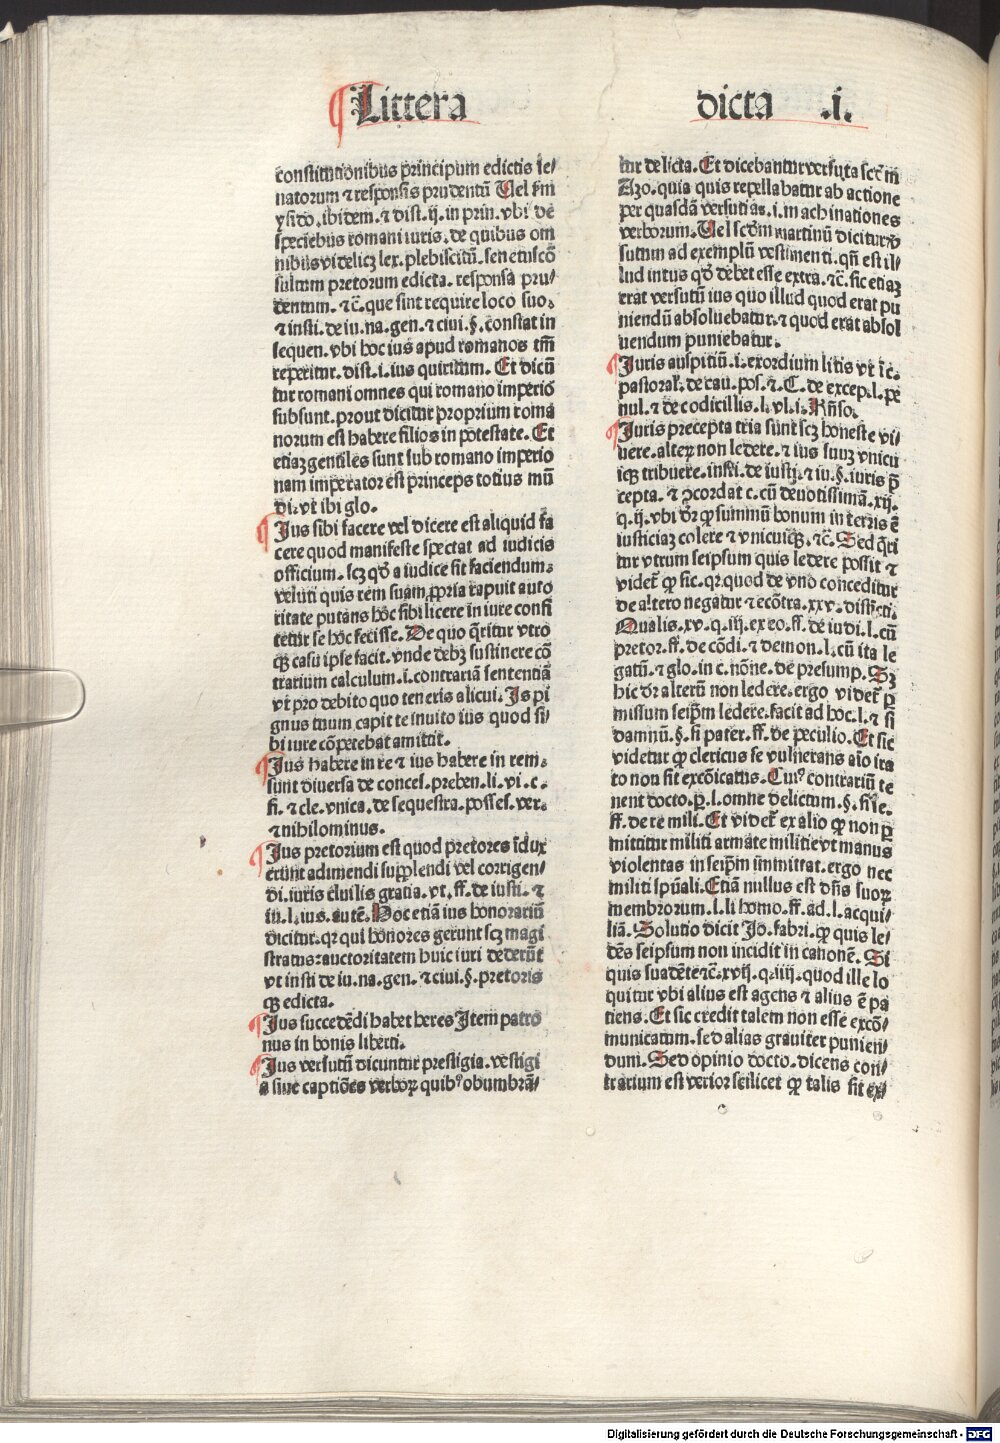 Littera dicta .i.
constitutionibus principum edictis se/
natorum ⁊ responsis prudentū Uel scḋm
ysido. ibidem. ⁊ dist. ij. in prin. vbi de
speciebus romani iuris. de quibus om
nibus videlicꝫ lex. plebiscitū. senatuscō
sultum pretorum edicta. responsa pru/
dentum. ⁊c̄. que sint require loco suo.
⁊ insti. de iu. na. gen. ⁊ ciui. §. constat in
sequen. vbi hoc ius apud romanos tm̄
reperitur. dist. i. ius quiritum. Et dicū
tur romani omnes qui romano imperio
subsunt. prout dicitur proprium roma
norum est habere filios in potestate. Et
etiaꝫ gentiles sunt sub romano imperio
nam imperator est princeps totius mū
di. vt ibi glo.
Jus sibi facere vel dicere est aliquid fa
cere quod manifeste spectat ad iudicis
officium. scꝫ qḋ a iudice sit faciendum.
veluti quis rem suam ꝓpria rapuit auto
ritate putans hoc sibi licere in iure confi
tetur se hoc fecisse. De quo q̄ritur vtro
qꝫ casu ipse facit. vnde debꝫ sustinere cō
trarium calculum. i. contrariā sententiā
vt pro debito quo teneris alicui. Is pi
gnus tuum capit te inuito ius quod si/
bi iure cōpetebat amittit.
Jus habere in re ⁊ ius habere in rem.
sunt diuersa de conces. preben. li. vi. c.
fi. ⁊ cle. vnica. de sequestra. posses. ver.
⁊ nihilominus.
Jus pretorium est quod pretores ītdux
erunt adimendi supplendi vel corrigen/
di. iuris ciuilis gratia. vt. ff. de iusti. ⁊
iu. l. ius. autē. Hoc etiā ius honorariū
dicitur. qꝛ qui honores gerunt scꝫ magi
stratus: auctoritatem huic iuri dederūt
vt insti de iu. na. gen. ⁊ ciui. §. pretoris
qꝫ edicta.
Jus succedēdi habet heres Item patro
nus in bonis liberti.
Jus versutū dicuntur prestigia. vestigi
a siue captiōes verboꝝ quibꝰ obumbrā/
tur delicta. Et dicebantur versuta scḋm
Azo. quia quis repellabatur ab actione
per quasdā versutias. i. machinationes
verborum. Uel scḋm martinū dicitur ꝟ
sutum ad exemplū vestimenti. qn̄ est il/
lud intus qḋ debet esse extra. ⁊c̄. sic etiaꝫ
erat versutū ius quo illud quod erat pu
niendū absoluebatur. ⁊ quod erat absol
uendum puniebatur.
Juris auspitiū. i. exordium litis vt ī c.
pastoral. de cau. pos. ⁊. C. de excep. l. pe
nul. ⁊ de codicillis. l. vl. i. Rn̄so.
Juris precepta tria sunt scꝫ honeste vi/
uere. alteꝝ non ledere. ⁊ ius suuꝫ vnicu
iqꝫ tribuere. insti. de iusti. ⁊ iu. §. iuris p̄
cepta. ⁊ ꝯcordat c. cū deuotissimā. xij.
q. ij. vbi dr̄ ꝙ summū bonum in terris ē
iusticiaꝫ colere ⁊ vnicuiqꝫ. ⁊c̄. Sed q̄ri
tur vtrum seipsum quis ledere possit ⁊
videt̄ ꝙ sic. qꝛ quod de vno conceditur
de altero negatur ⁊ ecōtra. xxv. disti̅cti.
Qualis. xv. q. iij. ex eo. ff. de iudi. l. cū
pretor. ff. de cōdi. ⁊ demon. l. cū ita le
gatū. ⁊ glo. in c. nōne. de presump. Sꝫ
hic dr̄ alterū non ledere. ergo videt̄ ꝑ
missum seip̄m ledere. facit ad hoc. l. ⁊ si
damnū. §. si pater. ff. de peculio. Et sic
videtur ꝙ clericus se vulnerans aīo ira
to non sit excōicatus. Cuiꝰ contrariū te
nent docto. ꝑ. l. omne delictum. §. fi. e.
ff. de re mili. Et videt̄ ex alio ꝙ non ꝑ
mittitur militi armate militie vt manus
violentas in seip̄m immittat. ergo nec
militi spūali. Etiā nullus est dn̄s suoꝝ
membrorum. l. li homo. ff. ad. l. acqui/
liā. Solutio dicit Jo. fabri. ꝙ quis le/
dēs seipsum non incidit in canonē. Si
quis suadēte ⁊c̄. xvij. q. iiij. quod ille lo
quitur vbi alius est agens ⁊ alius ē pa
tiens. Et sic credit talem non esse excō/
municatum. sed alias grauiter punien/
dum. Sed opinio docto. dicens con/
trarium est verior scilicet ꝙ talis sit ex/
Digitalisierung gefördert durch die Deutsche Forschungsgemeinschaft - DFG